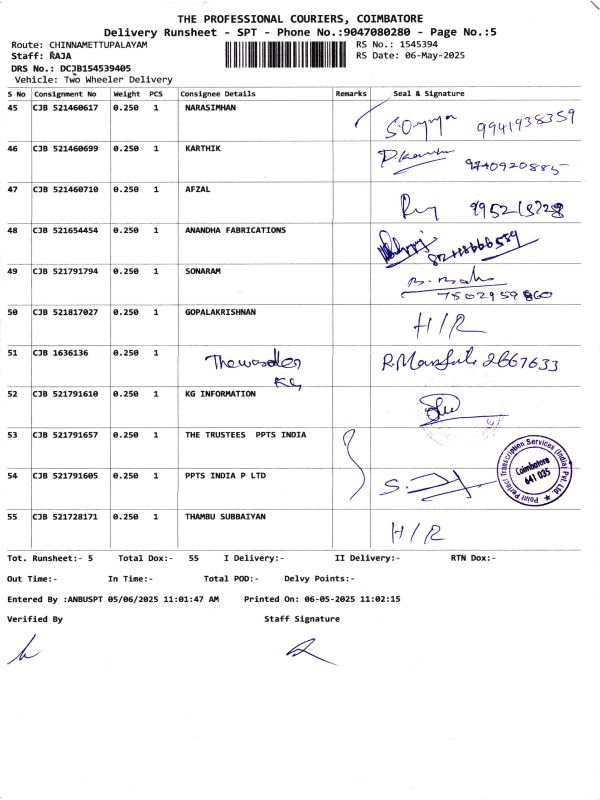 THE PROFESSIONAL COURIERS, COIMBATORE
Delivery Runsheet - SPT - Phone No.:9047080280 - Page No.:5
Route: CHINNAMETTUPALAYAM
RS No.: 1545394
Staff: RAJA
RS Date: 06-May-2025
DRS No.: DCJB154539405
Vehicle: Two Wheeler Delivery
S No Consignment No Weight PCS Consignee Details Remarks Seal & Signature
45 CJB 521460617 0.250 1 NARASIMHAN
9941938359
46 CJB 521460699 0.250 1 KARTHIK
9740920885
47 CJB 521460710 0.250 1 AFZAL
48 CJB 521654454 0.250 1 ANANDHA FABRICATIONS
49 CJB 521791794 0.250 1 SONARAM
7502959860
50 CJB 521817027 0.250 1 GOPALAKRISHNAN
H/R
51 CJB 1636136 0.250 1
2667633
KG
52 CJB 521791610 0.250 1 KG INFORMATION
53 CJB 521791657 0.250 1 THE TRUSTEES PPTS INDIA
Point Perfect Transcription Services (India) Pvt. Ltd.
Coimbatore
641 035
54 CJB 521791605 0.250 1 PPTS INDIA P LTD
55 CJB 521728171 0.250 1 THAMBU SUBBAIYAN
H/R
Tot. Runsheet:- 5 Total Dox:- 55 I Delivery:- II Delivery:- RTN Dox:-
Out Time:- In Time:- Total POD:- Delvy Points:-
Entered By :ANBUSPT 05/06/2025 11:01:47 AM Printed On: 06-05-2025 11:02:15
Verified By Staff Signature